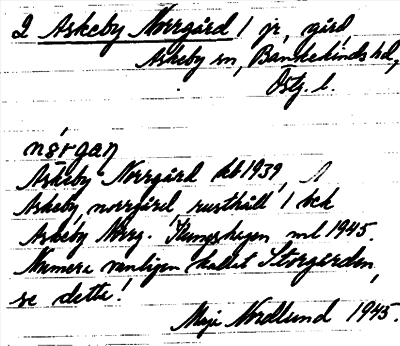 2 Askeby Norrgård 1 jr, gård,
Askeby sn, Bankekinds hd,
Östg. l.
nó̱rgaɲ
Askeby Norrgård kb 1939,
Askeby, norrgård, rusthåll 1 bck
Askeby Norrg. Kungshögen ml 1945.
Numera vanligen kallat Storgården,
se detta!
Maja Nordlund 1945.